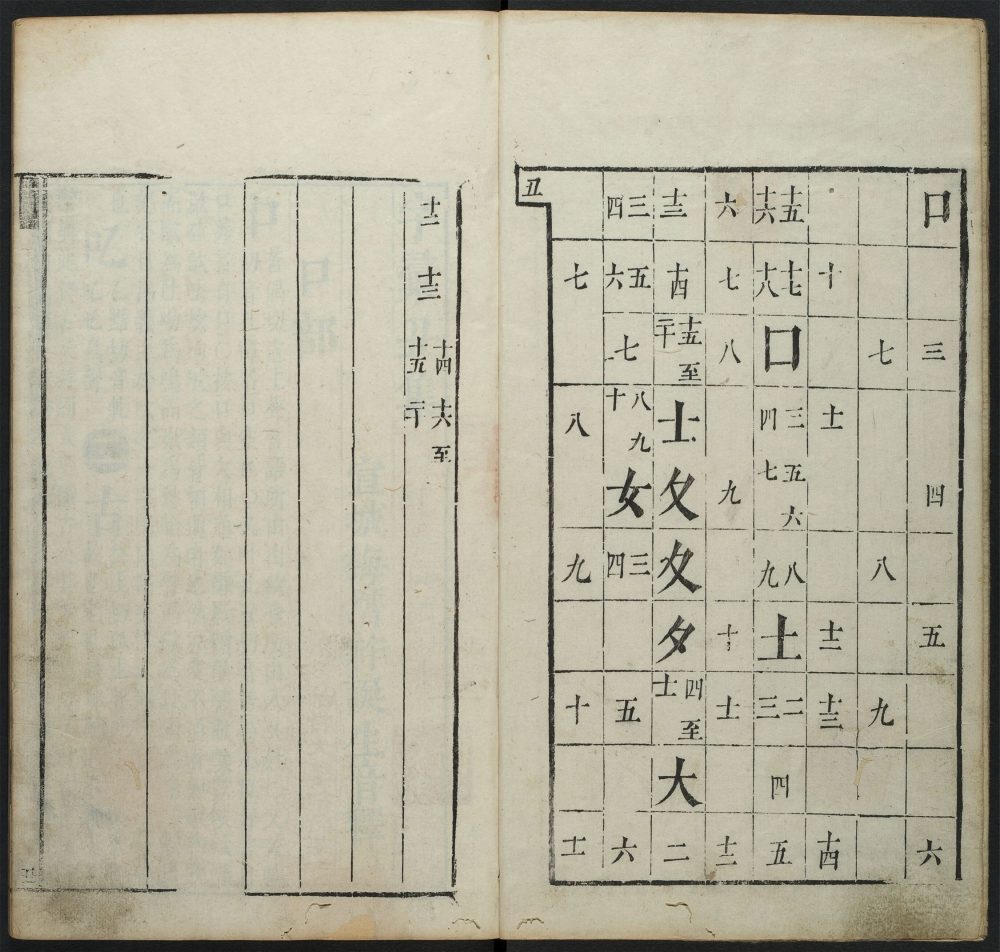 丑
口 三 四 五 六
七 八 九
十 十一 十二 十三 十四
十五 十六 十七 十八 囗 三 四 五 六 七 八 九 土 二 三 四 五
六 七 八 九 十 十一 十二
十三 十四 十五至二十 士 夂 夊 夕 四至十一 大 二
三 四 五 六 七 八 九 十 女 三 四 五 六
七 八 九 十 十一
十二 十三 十四 十五 十六至二十